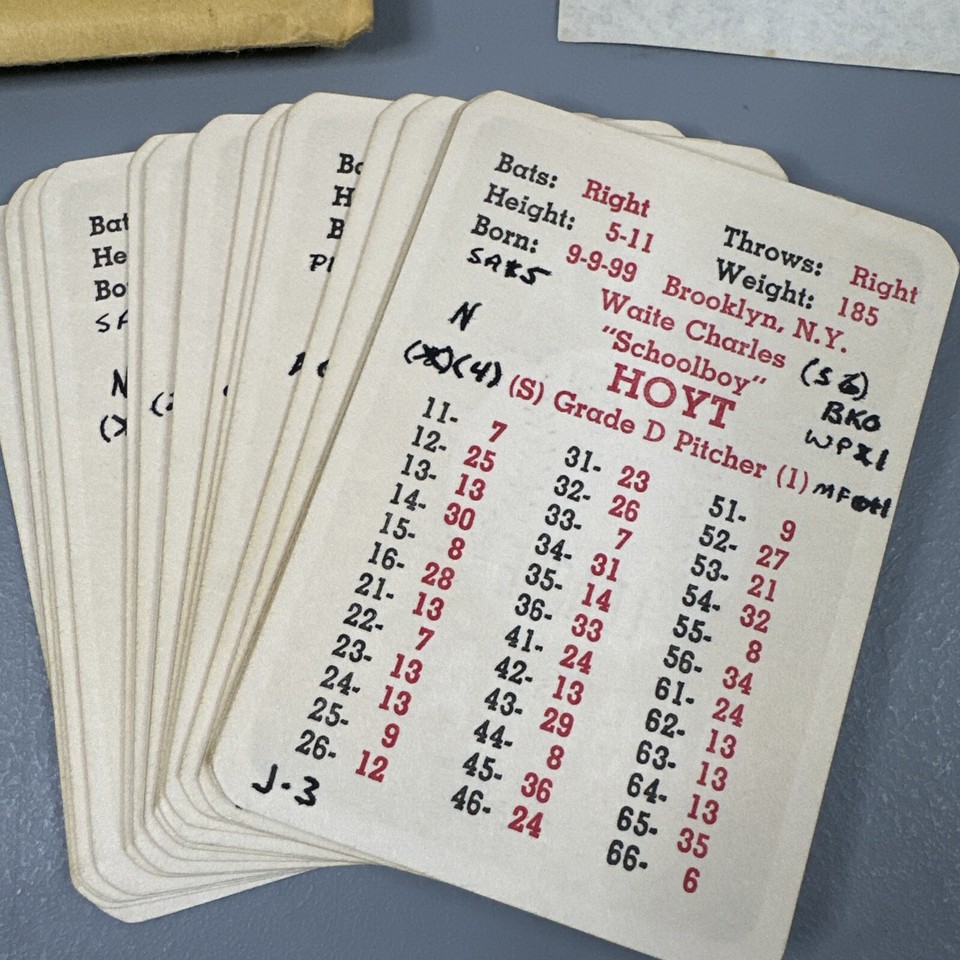 Bats: Right Throws: Right
Height: 5-11 Weight: 185
Born: 9-9-99 Brooklyn, N.Y.
Waite Charles
"Schoolboy"
HOYT
(S) Grade D Pitcher (1)
N
(4)
BKO
11- 7 31- 23 51- 9
12- 25 32- 26 52- 27
13- 13 33- 7 53- 21
14- 30 34- 31 54- 32
15- 8 35- 14 55- 8
16- 28 36- 33 56- 34
21- 13 41- 24 61- 24
22- 7 42- 13 62- 13
23- 13 43- 29 63- 13
24- 13 44- 8 64- 13
25- 9 45- 36 65- 35
26- 12 46- 24 66- 6
J-3
Bat
He
Bo
N